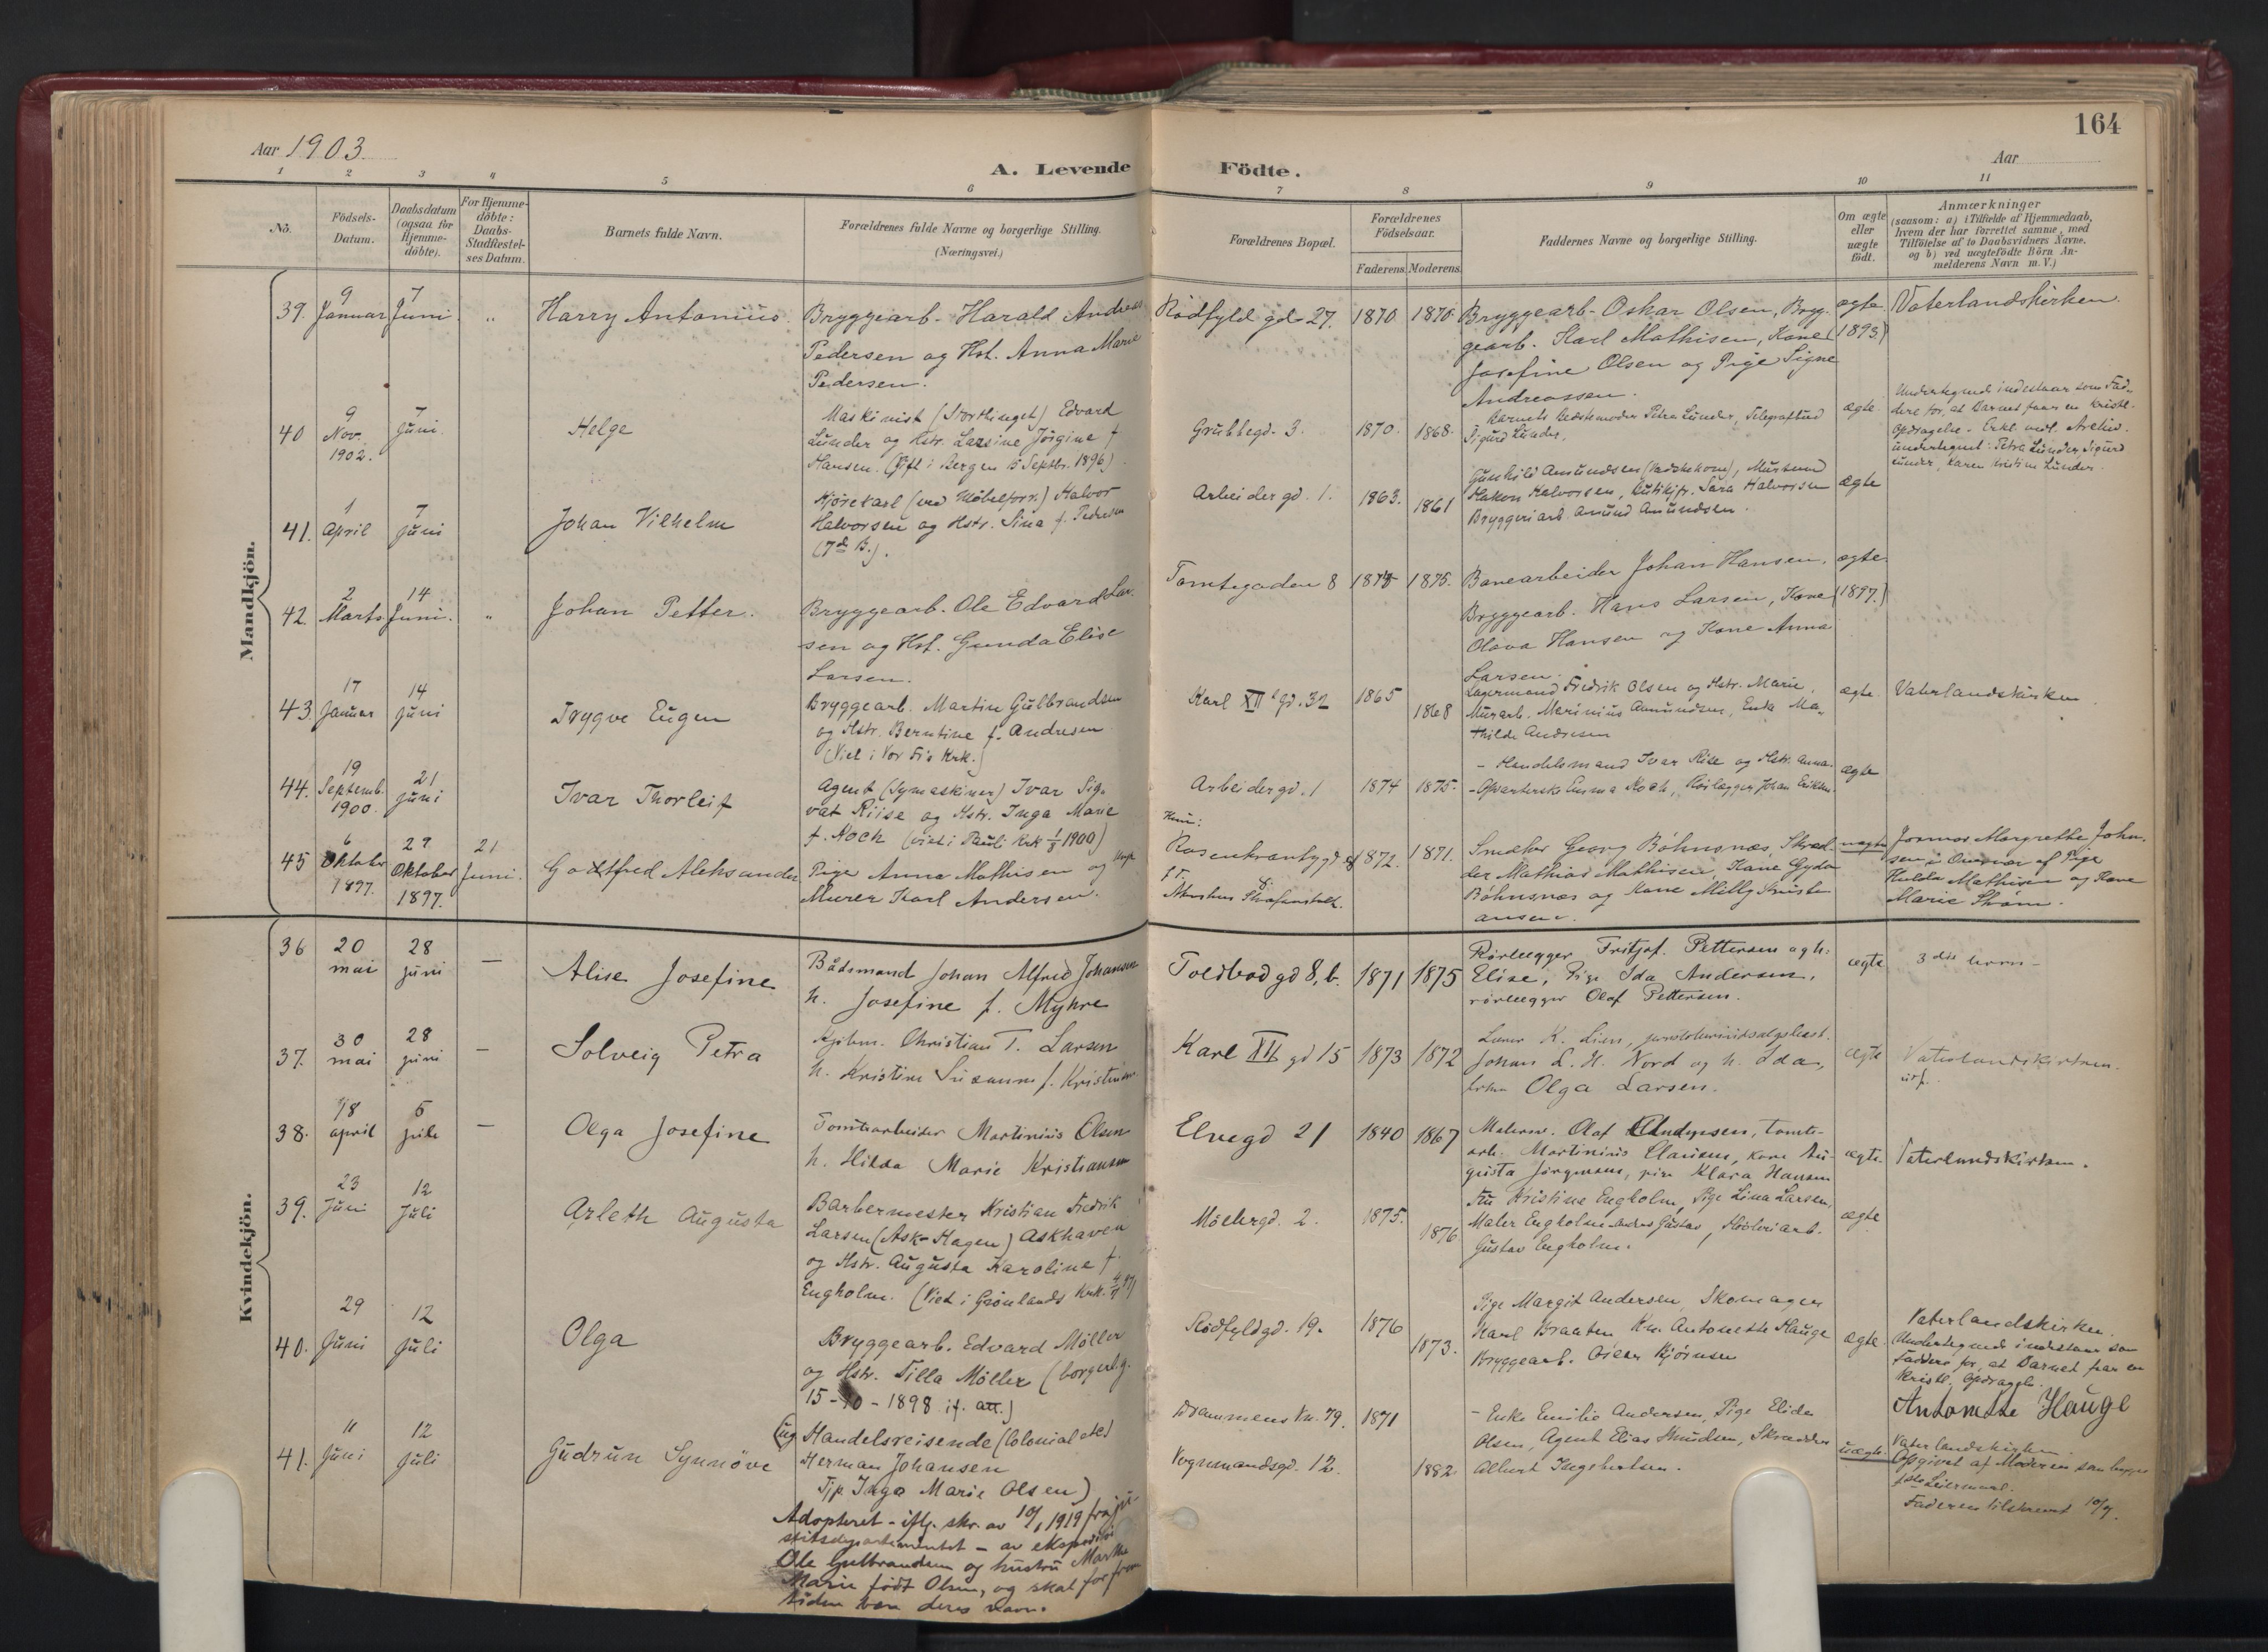 164
Aar 1903.
Aar
A. Levende Födte.
1 2 3 4 5 6 7 8 9 10 11
No.
Födsels-Datum.
Daabsdatum (ogsaa for Hjemme-döbte).
For Hjemme-döbte: Daabs-Stadfæstel-ses Datum.
Barnets fulde Navn.
Forældrenes fulde Navne og borgerlige Stilling.
(Næringsvei.)
Forældrenes Bopæl.
Forældrenes Födselsaar.
Faderens. Moderens.
Faddernes Navne og borgerlige Stilling.
Om ægte eller uægte födt.
Anmærkninger
(saasom: a) i Tilfælde af Hjemmedaab,
hvem der har forrettet samme, med
Tilföielse af to Daabsvidners Navne,
og b) ved uægtefödte Börn An-
melderens Navn m. V.)
Mandkjön.
39. 9 Januar 7 Juni. „ Harry Antonius.
Bryggearb. Harald Andreas
Pedersen og Hst. Anna Marie
Pedersen.
Rödfyld gd. 27. 1870 1870
Bryggearb. Oskar Olsen, Bryg-
gearb. Karl Mathisen, Kone
Josefine Olsen og Pige Signe
Andreassen.
ægte (1893.)
Vaterlandskirken.
40 9 Nov. 1902. 7 Juni. Helge
Maskinist (Storthinget) Edvard
Lunder og Hstr. Larsine Jörgine f.
Hansen. (Gift i Bergen 15 Septbr. 1896)
Grubbegd. 3. 1870. 1868.
Barnets Bedstemoder Petra Lunder, Telegrafbud
Sigurd Lunder.
ægte
Undertegnede indestaar som Fad-
dere for, at Barnet faar en kristl.
Opdragelse. Erkl. vedl. Archiv.
undertegnet: Petra Lunder, Sigurd
Lunder, Karen Kristine Lunder.
41. 1 April 7 Juni Johan Vilhelm
Kjörekarl (ved Möbelforr.) Halvor
Halvorsen og Hstr. Sina f. Pedersen
(7de B.).
Arbeidergd. 1. 1863. 1861
Gunhild Amundsen, Mursvend
Hakon Halvorsen, Butikjfr. Sara Halvorsen
Bryggeriarb. Amund Amundsen.
ægte
42. 2 Marts 14 Juni. „ Johan Petter.
Bryggearb. Ole Edvard Lar-
sen og Hst. Gunda Elise
Larsen.
Tomtegaden 8 1875.
Banearbeider Johan Hansen,
Bryggearb. Hans Larsen, Kone
Olava Hansen og Kone Anna
Larsen.
ægte. (1897.)
43. 17 Januar 14 Juni Trygve Eugen
Bryggearb. Martin Gulbrandsen
og Hstr. Berntine f. Andresen
(Viet i Vor Frs Krk.)
Karl XII gd. 32 1865 1868
Lagermand Fredrik Olsen og Hstr. Marie,
Murarb. Marinius Amundsen, Enke Ma-
thilde Andresen
ægte. Vaterlandskirken.
44. 19 Septemb. 1900. 21 Juni Ivar Thorleif
Agent (Symaskiner) Ivar Sig-
vat Riise og Hstr. Inga Marie
f. Koch (viet i Pauli Krk 1900)
Arbeidergd. 1 1874 1875.
- Handelsmand Ivar Riise og Hstr. Anna.
- Opvarterske Emma Koch, Rörlægger Johan Eriksen.
ægte
45 6 Oktober 1897. 29 Oktober 1897. 21 Juni. Godtfred Aleksander
Pige Anna Mathisen og Ungk
Murer Karl Andersen.
Hun:
Rosenkrantzgd.
f. T.
Akershus Strafanstalt.
1872. 1871.
Smeder Georg Böhnsnæs, Skræd-
der Mathias Mathisen, Kone Gyda
Böhnsnæs og Kone Milly Kristi-
ansen.
uægte
Jormor Margrethe John-
sen i Overvær af Pige
Hulda Mathisen og Kone
Marie Ström.
Kvindekjön.
36 20 mai 28 juni — Alise Josefine
Bådsmand Johan Alfred Johansen
h. Josefine f. Myhre
Toldbodgd 8, b. 1871 1875
Rörlægger Fritjof Pettersen og h.
Elise, Pige Ida Andersen,
rörlægger Olaf Pettersen.
ægte 3die barn -
37. 30 mai 28 juni — Solveig Petra
Kjöbm. Christian T. Larsen
h. Kristine Susanne f. Kristensen
Karl XII gd 15 1873 1872
Johan L. H. Nord og h. Ida,
Olga Larsen.
ægte Vaterlandskirken.
38. 18 april 5 juli — Olga Josefine
Tomtearbeider Martinius Olsen
h. Hilda Marie Kristiansen
Elvegd 21 1840 1867
Malersv. Olaf Andersen, tomte-
arb. Martinius Clausen, kone Au-
gusta Jörgensen, pige Klara Hansen
ægte. Vaterlandskirken.
39. 23 Juni 12 Juli Arleth Augusta
Barbermester Kristian Fredrik
Larsen (Ask-Hagen) Askhaven
og Hstr. Augusta Karoline f.
Engholm. (Viet i Grönlands Krk.
Möllergd. 2. 1875. 1876
Fru Kristine Engholm, Pige Lina Larsen,
Maler Engholm Anders Gustav, Hövleriarb.
Gustav Engholm.
ægte
40. 29 Juni 12 Juli Olga
Bryggearb. Edvard Möller
og Hstr. Tilla Möller (borgerlig.
15-10-1898 if. att.)
Rödfyldgd. 19. 1876 1873.
Pige Margit Andersen, Skomager
Karl Braaten Kn. Antonette Hauge
Bryggearb. Oscar Björnsen
ægte.
Vaterlandskirken.
Undertegnede indestaar som
Faddere for, at Barnet faar en
kristl. Opdragelse.
Antonette Hauge
41. 11 Juni 12 Juli Gudrun Synnöve
(ug Handelsreisende (Colonial etc)
Herman Johansen
Tjp Inga Marie Olsen)
Drammensvn. 79. 1871
Vognmandsgd. 12. 1882
- Enke Emilie Andersen, Pige Elida
Olsen, Agent Elias Knudsen, Skrædder
Albert Ingebertsen.
uægte.
Vaterlandskirken.
Opgivet af Moderen som begges
1ste Leiermaal.
Faderen tilskrevet 10/7.
Adopteret - iflg. skr. av 10/1 1919 fra ju-
stitsdepartementet - av ekspeditör
Ole Gulbrandsen og hustru Marthe
Marie födt Olsen, og skal for frem-
tiden bære deres navn.